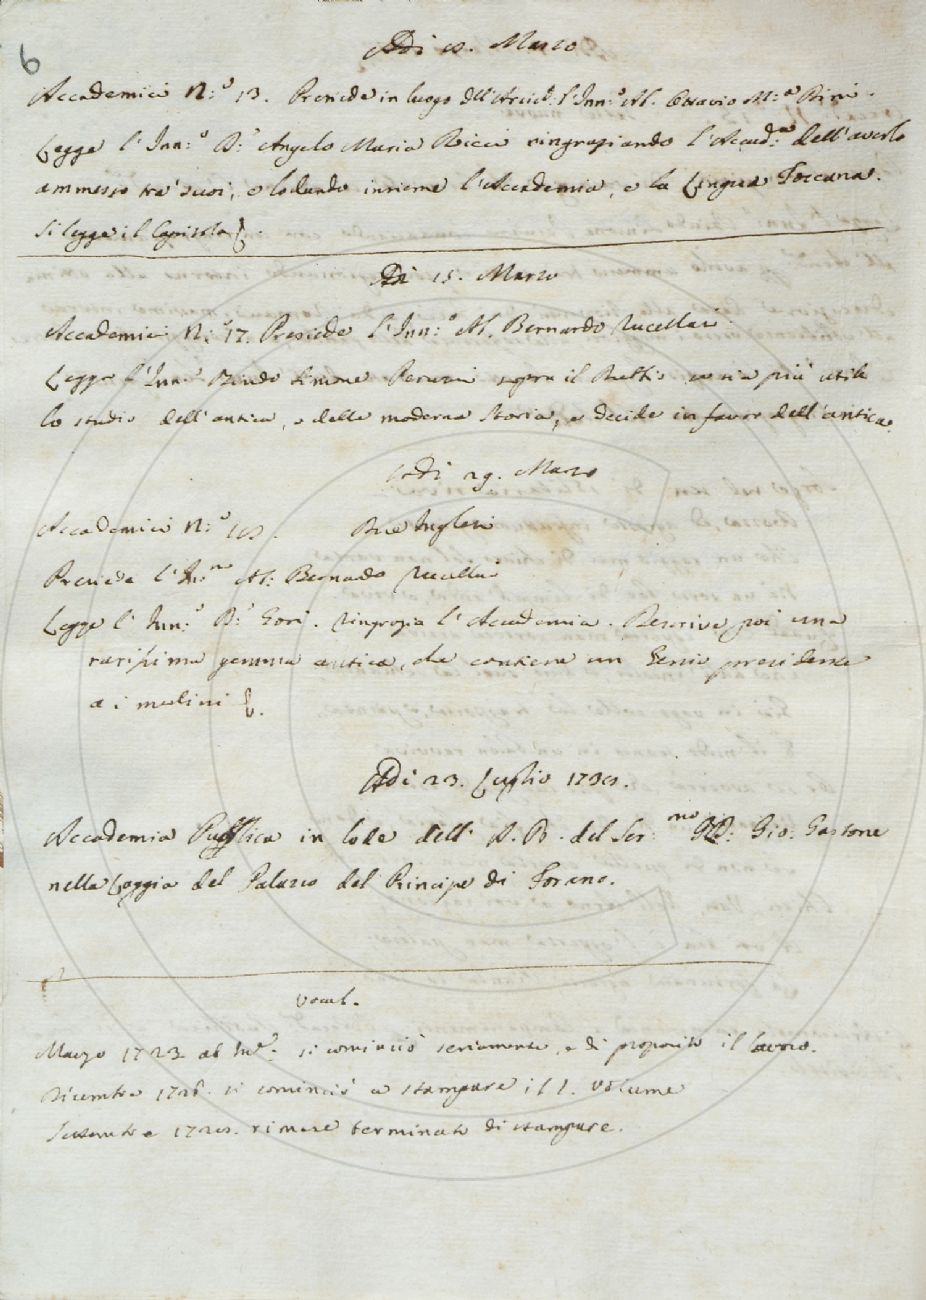 6
Adi 8. Marzo
Accademici N:º 13. Presiede in luogo dell'Arcid: l'Inn:º Al.
Legge l'Inn:º D:r Angelo Maria Ricci ringraziando l'Accad:a dell'averlo
ammesso tra' suoi, e lodando insieme l'Accademia, e la Lingua Toscana.
Si legge il
Adi 15. Marzo
Accademici N:º 17. Presiede l'Inn:º Al. Bernardo Rucellai
Legge l'Inn:º Bindo Simone Peruzzi sopra il se sia più utile
lo studio dell'antica, o della moderna Storia, e decide in favor dell'antica.
Adi 29. Marzo
Accademici N:º 18. Due Inglesi
Presiede l'Inn:º Al: Bernardo Rucellai
Legge l'Inn:º D:r Gori. Ringrazia l'Accademia. Descrive poi una
rarissima gemma antica, che contiene un Genio presidente
a i mulini
Adi 23. Luglio 1738.
Accademia Pubblica in lode dell' A. R. del Ser:mo GD: Gio: Gastone
nella Loggia del Palazzo del Principe di Forano.
vocab.
Marzo 1723 ab Inc: si cominciò seriamente, e di proposito il lavoro.
Dicembre 1726. si cominciò a stampare il 1. volume
Settembre 1738. rimase terminato di stampare.